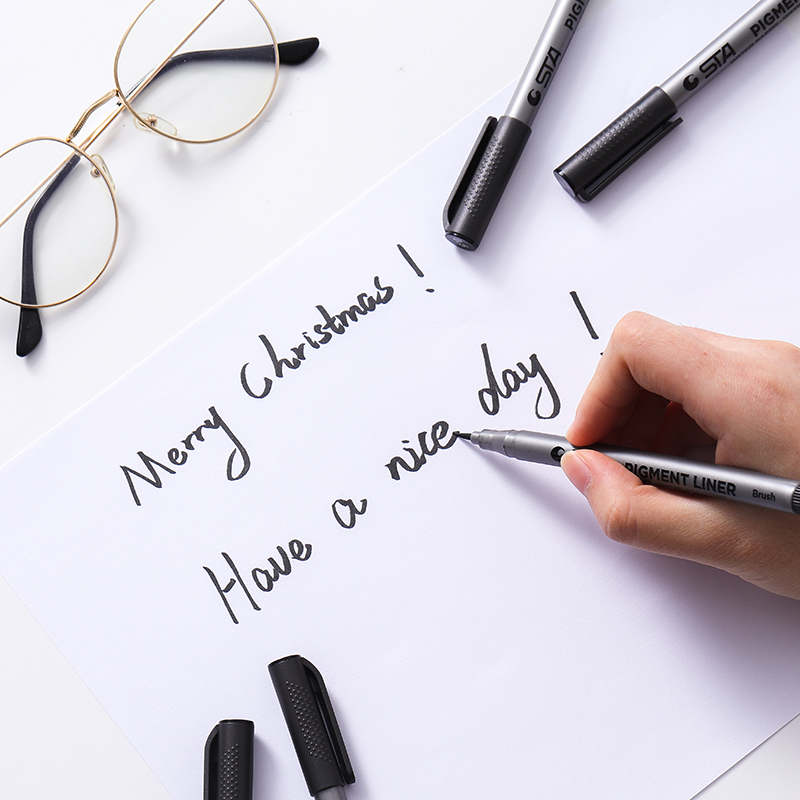 STA PIGM
STA PIGMEN
Merry Christmas!
Have a nice day!
PIGMENT LINER Brush